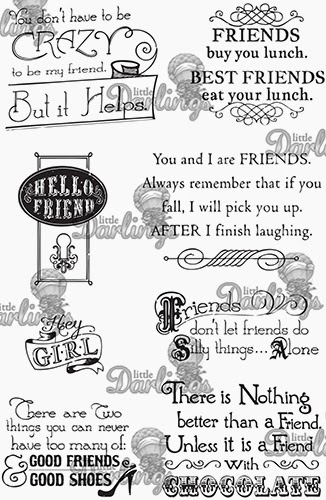 You don't have to be
CRAZY
to be my friend.
But it Helps.
FRIENDS
buy you lunch.
BEST FRIENDS
eat your lunch.
HELLO
FRIEND
You and I are FRIENDS.
Always remember that if you
fall, I will pick you up.
AFTER I finish laughing.
Hey
GIRL
Friends
don't let friends do
Silly things... Alone
There are Two
things you can never
have too many of:
GOOD FRIENDS
& GOOD SHOES
There is Nothing
better than a Friend.
Unless it is a Friend
With
CHOCOLATE
little
Darlings
little
Darlings
little
Darlings
little
Darlings
little
Darlings
little
Darlings